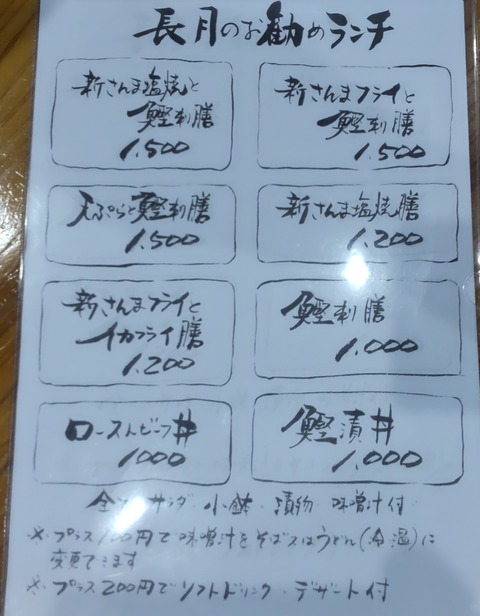 長月のお勧めランチ
新さんま塩焼と
鰹刺膳
1,500
新さんまフライと
鰹刺膳
1,500
天ぷらと鰹刺膳
1,500
新さんま塩焼膳
1,200
新さんまフライと
イカフライ膳
1,200
鰹刺膳
1,000
ローストビーフ丼
1000
鰹漬丼
1,000
サラダ 小鉢 漬物 味噌汁付
※プラス100円で味噌汁をそば又はうどん(冷温)に
変更できます
※プラス200円でソフトドリンク・デザート付